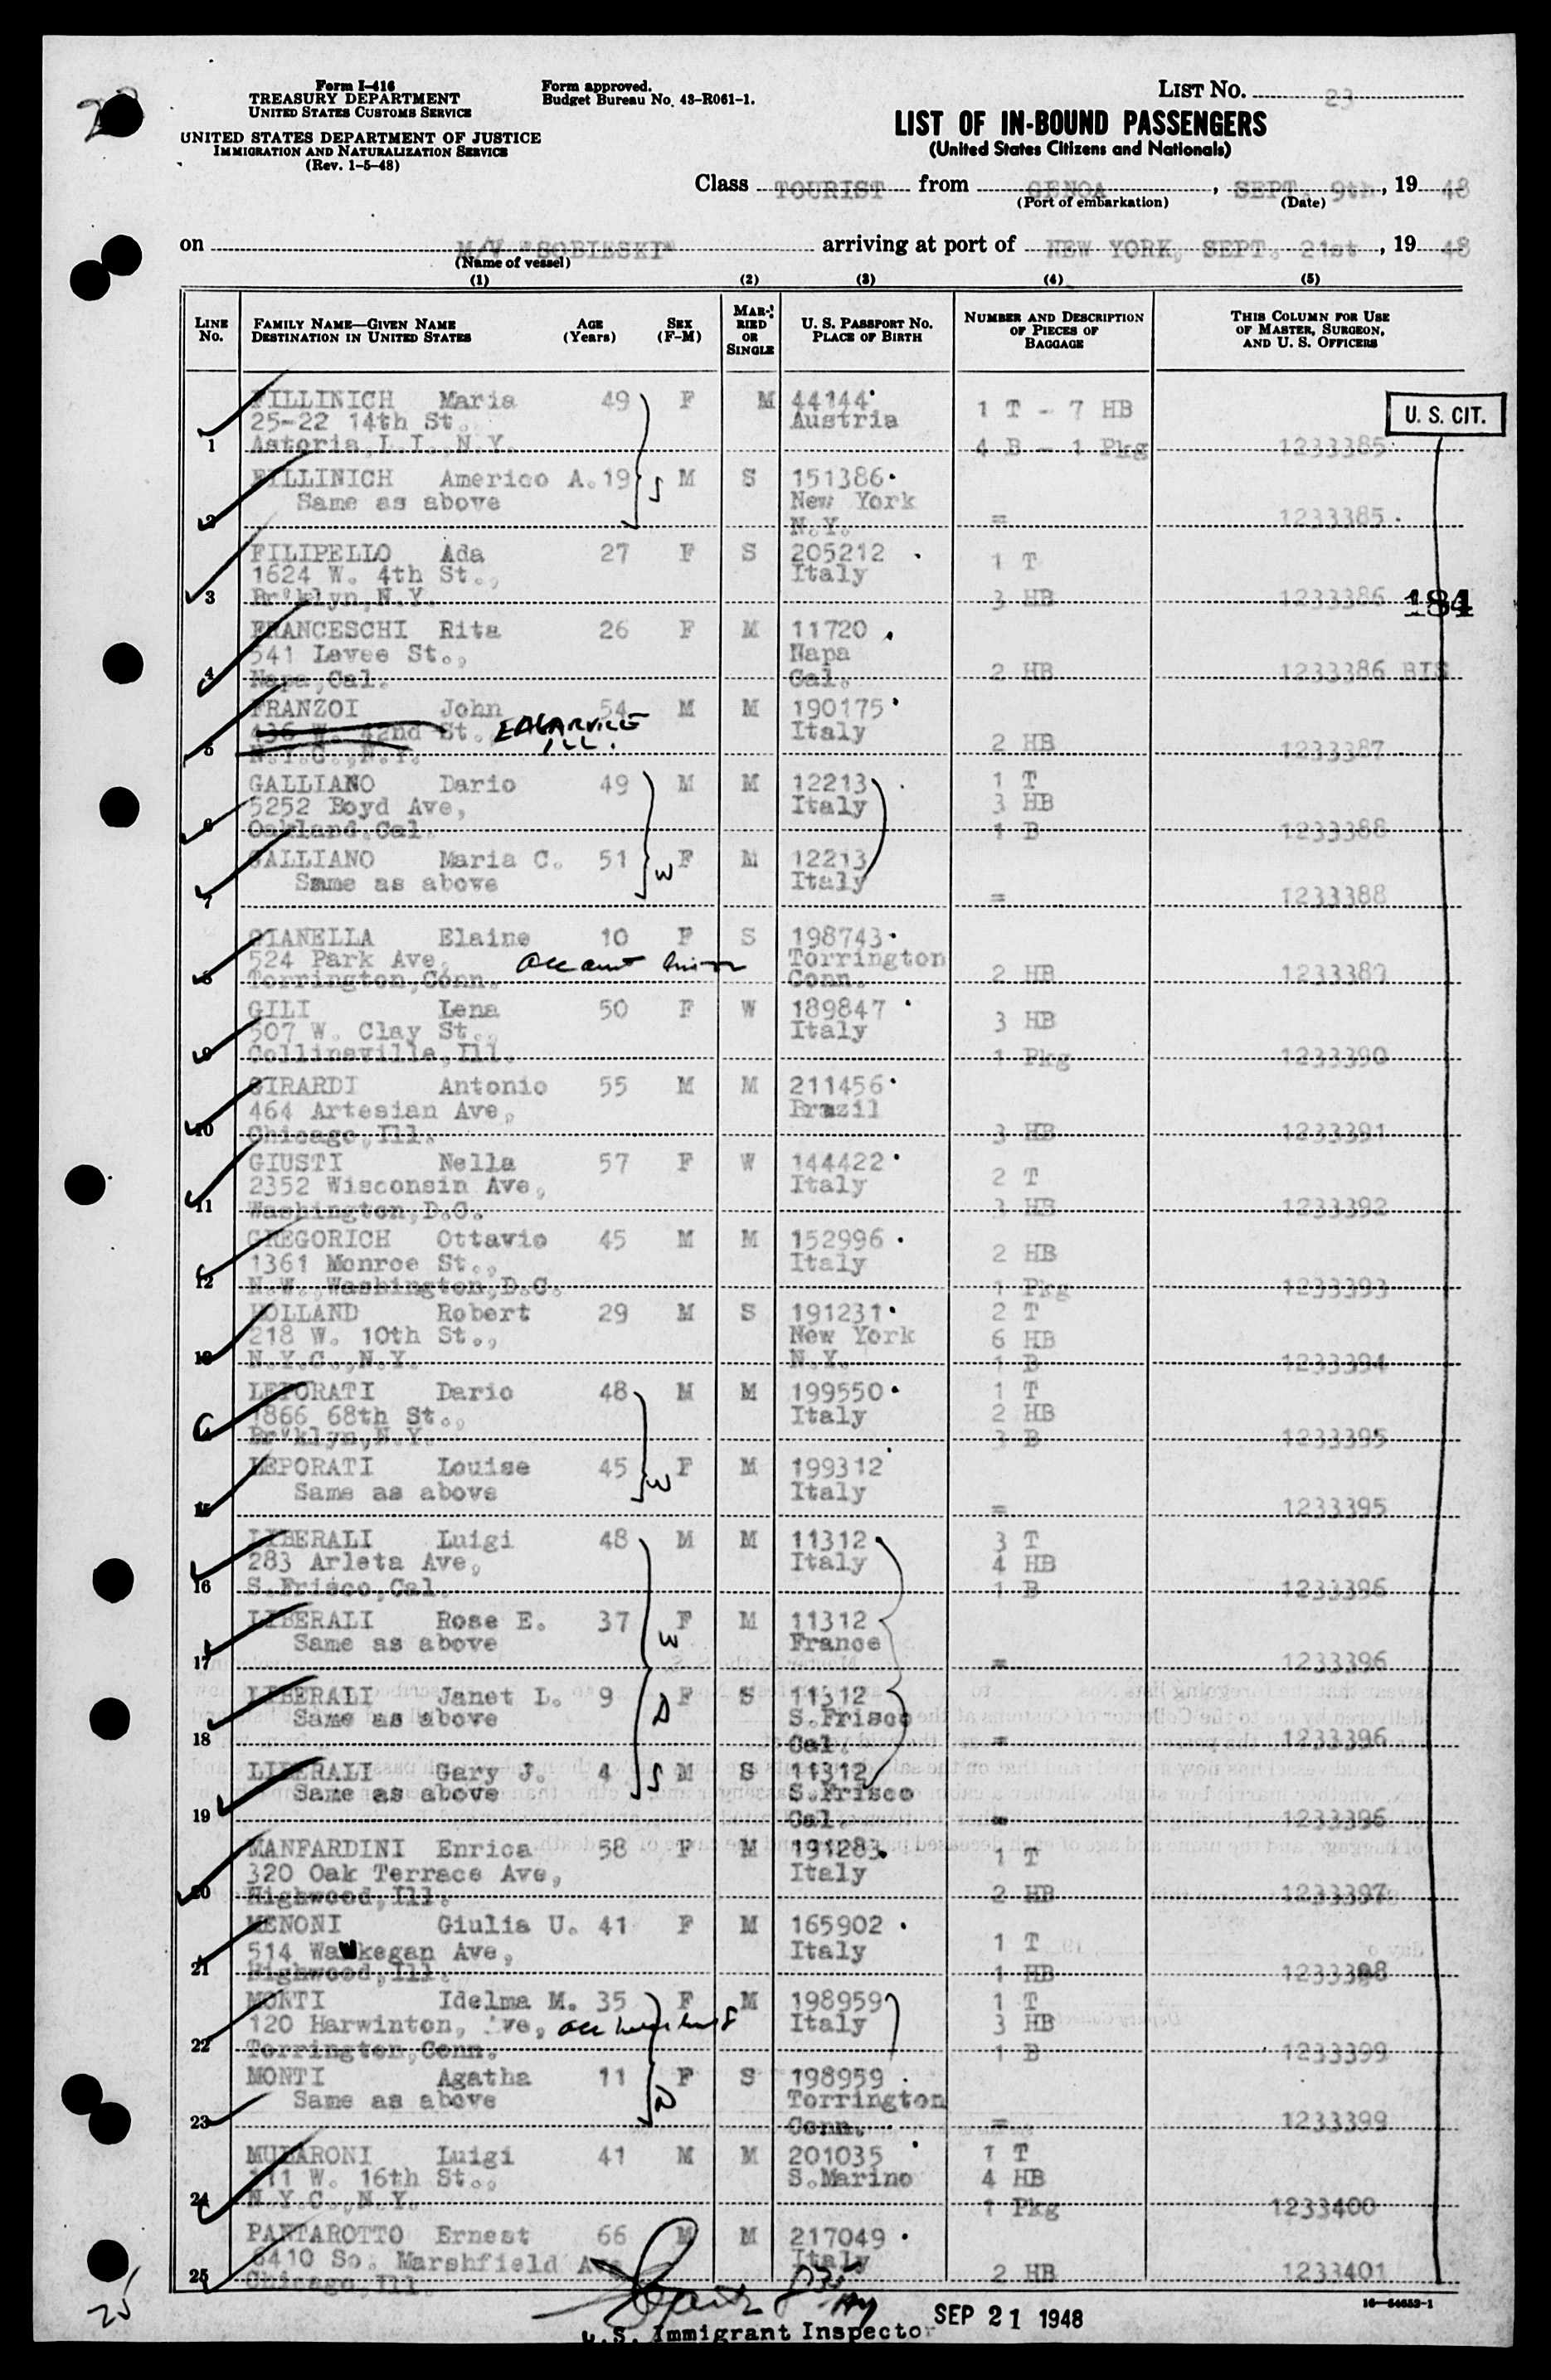 Form I-416
TREASURY DEPARTMENT
UNITED STATES CUSTOMS SERVICE
UNITED STATES DEPARTMENT OF JUSTICE
IMMIGRATION AND NATURALIZATION SERVICE
(Rev. 1-5-48)
Form approved.
Budget Bureau No. 43-R061-1.
LIST No. 23
LIST OF IN-BOUND PASSENGERS
(United States Citizens and Nationals)
Class TOURIST from GENOA, SEPT. 9th, 19 48
(Port of embarkation) (Date)
on M/V "SOBIESKI" arriving at port of NEW YORK, SEPT. 21st, 19 48
(Name of vessel)
(1) (2) (3) (4) (5)
LINE No. FAMILY NAME—GIVEN NAME DESTINATION IN UNITED STATES AGE (Years) SEX (F-M) MARRIED OR SINGLE U. S. PASSPORT No. PLACE OF BIRTH NUMBER AND DESCRIPTION OF PIECES OF BAGGAGE THIS COLUMN FOR USE OF MASTER, SURGEON, AND U. S. OFFICERS
U. S. CIT.
FILLINICH Maria 49 F M 44144 1 T - 7 HB
25-22 14th St. Austria
1 Astoria,L.I.,N.Y. 4 B - 1 Pkg 1233385
FILLINICH Americo A. 19 S M S 151386
Same as above New York
2 N.Y. = 1233385
FILIPELLO Ada 27 F S 205212 1 T
1624 W. 4th St., Italy
3 Br'klyn,N.Y. 3 HB 1233386 184
FRANCESCHI Rita 26 F M 11720
541 Levee St., Napa
4 Napa,Cal. Cal. 2 HB 1233386 BIS
FRANZOI John 54 M M 190175
436 W. 42nd St. EDGARVILLE ILL. Italy
5 N.Y.C.,N.Y. 2 HB 1233387
GALLIANO Dario 49 M M 12213 1 T
5252 Boyd Ave, Italy 3 HB
6 Oakland,Cal. 1 B 1233388
GALLIANO Maria C. 51 W F M 12213
Same as above Italy
7 = 1233388
GIANELLA Elaine 10 F S 198743
524 Park Ave, Torrington
8 Torrington,Conn. Conn. 2 HB 1233389
GILI Lena 50 F W 189847 3 HB
507 W. Clay St., Italy
9 Collinsville,Ill. 1 Pkg 1233390
GIRARDI Antonio 55 M M 211456
464 Artesian Ave, Brazil
10 Chicago,Ill. 3 HB 1233391
GIUSTI Nella 57 F W 144422 2 T
2352 Wisconsin Ave, Italy
11 Washington,D.C. 3 HB 1233392
GREGORICH Ottavio 45 M M 152996 2 HB
1361 Monroe St., Italy
12 N.W., Washington,D.C. 1 Pkg 1233393
HOLLAND Robert 29 M S 191231 2 T
218 W. 10th St., New York 6 HB
13 N.Y.C.,N.Y. N.Y. 1 B 1233394
LEPORATI Dario 48 M M 199550 1 T
1866 68th St., Italy 2 HB
14 Br'klyn,N.Y. 3 B 1233395
LEPORATI Louise 45 W F M 199312
Same as above Italy
15 = 1233395
LIBERALI Luigi 48 M M 11312 3 T
283 Arleta Ave, Italy 4 HB
16 S.Frisco,Cal. 1 B 1233396
LIBERALI Rose E. 37 W F M 11312
Same as above France
17 = 1233396
LIBERALI Janet L. 9 D F S 11312
Same as above S.Frisco
18 Cal. = 1233396
LIBERALI Gary J. 4 S M S 11312
Same as above S.Frisco
19 Cal. = 1233396
MANFARDINI Enrica 58 F M 191283 1 T
320 Oak Terrace Ave, Italy
20 Highwood,Ill. 2 HB 1233397
MENONI Giulia U. 41 F M 165902 1 T
514 Waukegan Ave, Italy
21 Highwood,Ill. 1 HB 1233398
MONTI Idelma M. 35 F M 198959 1 T
120 Harwinton, Ave, Italy 3 HB
22 Torrington,Conn. 1 B 1233399
MONTI Agatha 11 D F S 198959
Same as above Torrington
23 Conn. = 1233399
MULARONI Luigi 41 M M 201035 1 T
111 W. 16th St., S.Marino 4 HB
24 N.Y.C.,N.Y. 1 Pkg 1233400
PANTAROTTO Ernest 66 M M 217049
6410 So. Marshfield Ave Italy
25 Chicago,Ill. 2 HB 1233401
16—54653-1
25
SEP 21 1948
U.S. Immigrant Inspector